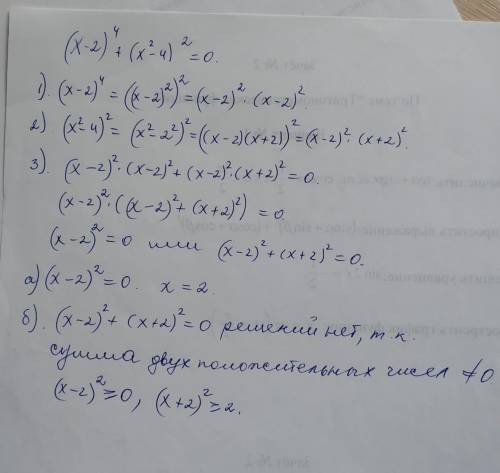 (x-2)⁴ + (x²-4)² = 0.
1). (x-2)⁴ = ((x-2)²)² = (x-2)² · (x-2)².
2) (x²-4)² = (x²-2²)² = ((x-2)(x+2))² = (x-2)² · (x+2)².
3). (x-2)² · (x-2)² + (x-2)² · (x+2)² = 0.
(x-2)² · ((x-2)² + (x+2)²) = 0.
(x-2)² = 0 или (x-2)² + (x+2)² = 0.
а) (x-2)² = 0. x = 2.
б). (x-2)² + (x+2)² = 0 решений нет, т.к.
сумма двух положительных чисел ≠ 0
(x-2)² ≥ 0, (x+2)² ≥ 2.